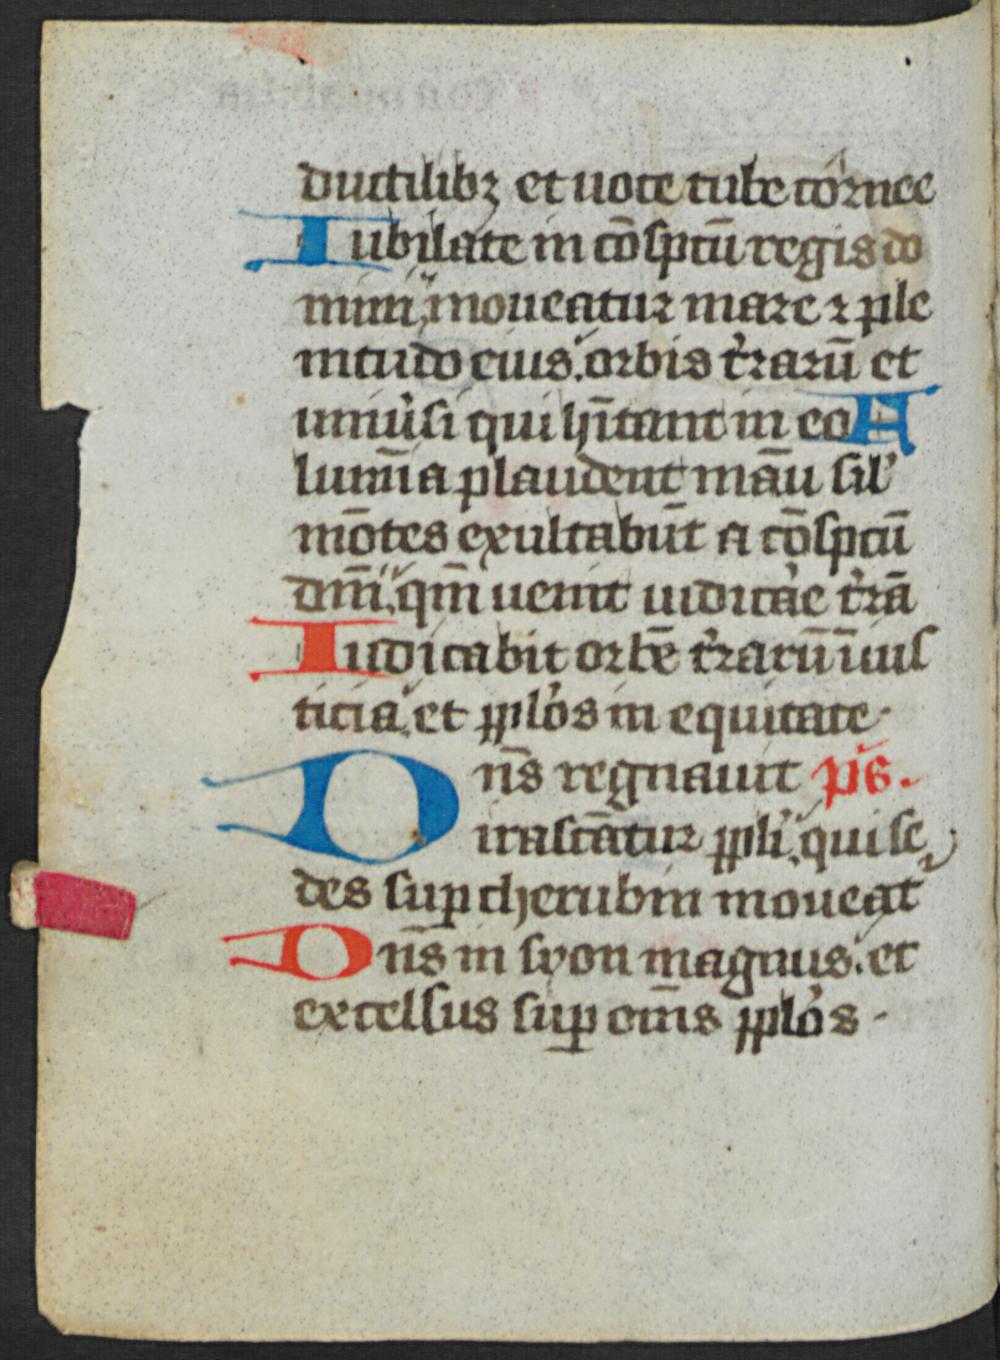 ductilibꝫ et uoce tube cornee
Iubilate in cōspcū regis do
mini, moueatur mare ⁊ ple
nitudo eius. orbis t̓rarū et
uniu̓si qui hītant in eo A
lumīa plaudent māu sil̓
mōtes exultabūt a cōspcū
dn̄i, qm̄ uenit iudica̓e t̓rā
Iudicabit orbē t̓rarū ī ius
ticia, et ꝓplo̓s in equitate.
Dn̄s regnauit ps̄.
irascātur ꝓpli, qui se
des suꝑ cherubin moueat᷑
Dn̄s in syon magnus. et
excelsus suꝑ om̄s ꝓplo̓s.